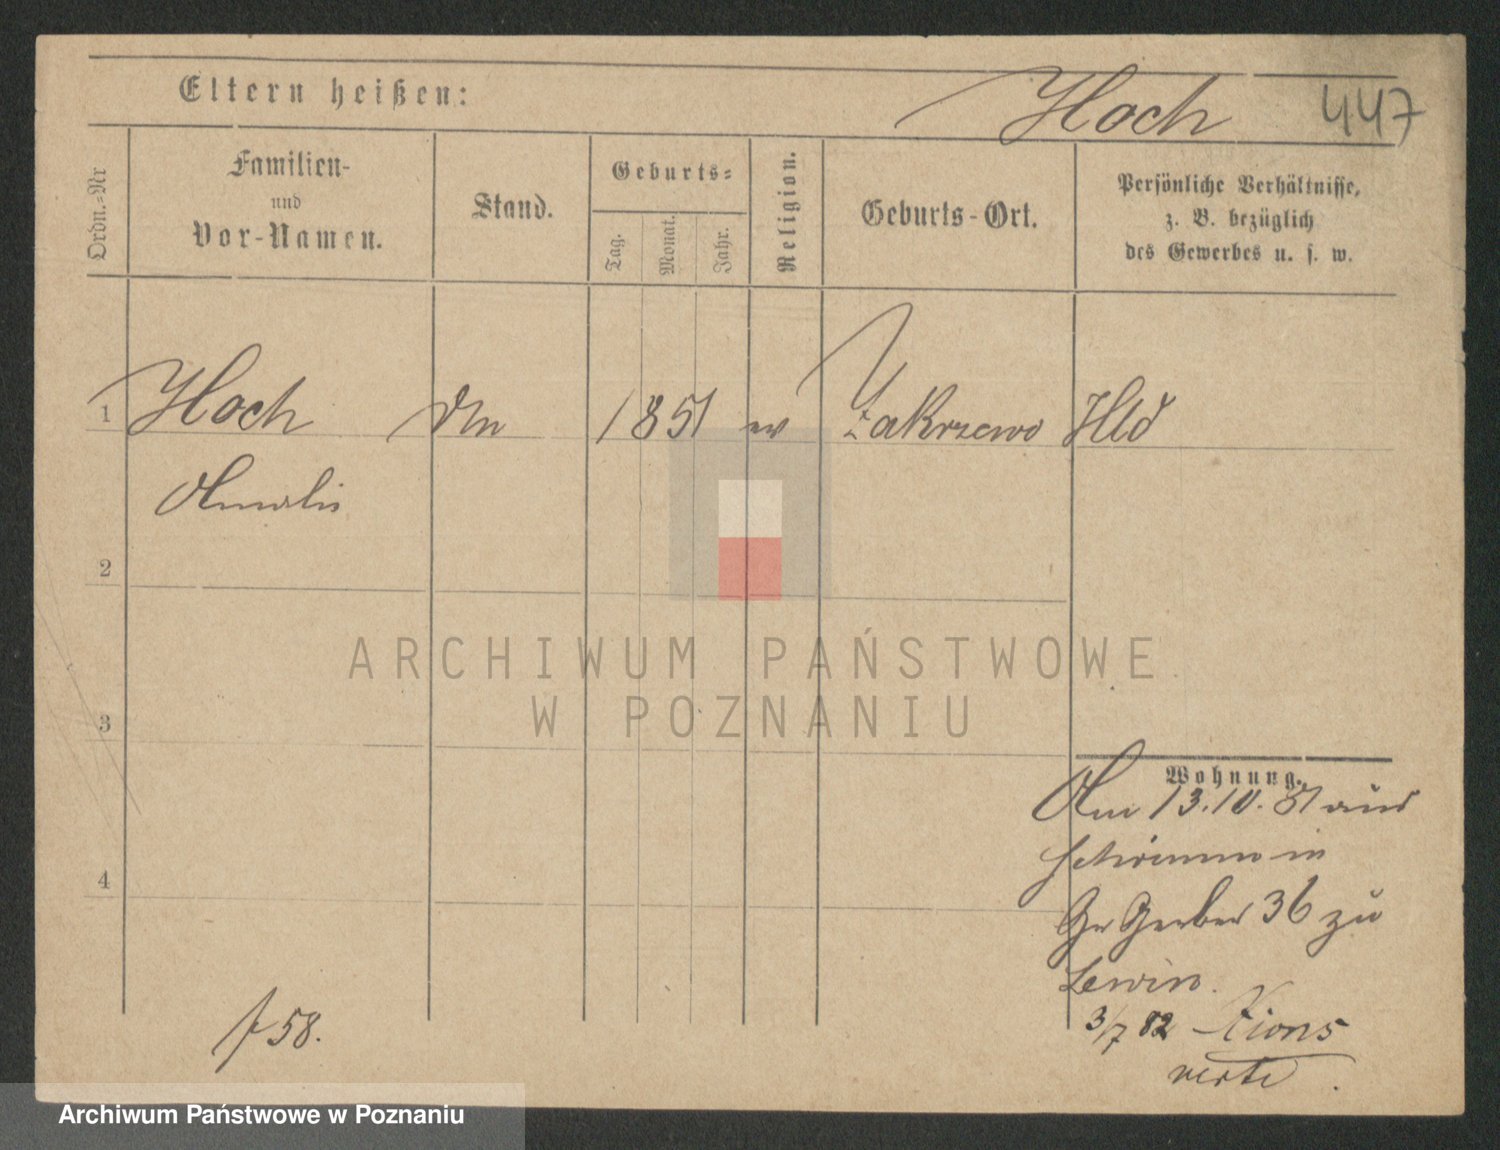 Eltern heißen:
Hoch
447
Ordn.-Nr
Familien-
und
Vor-Namen.
Stand.
Geburts-
Tag.
Monat.
Jahr.
Religion.
Geburts-Ort.
Persönliche Verhältnisse,
z. B. bezüglich
des Gewerbes u. s. w.
1 Hoch 1851 ev Zakrzewo
Amalie
2
3
4
ARCHIWUM PAŃSTWOWE
W POZNANIU
Wohnung.
Am 13.10.81 aus
Schrimm in
Gr Gerber 36 zu
Lewin.
3/7 82 Xions
58.
Archiwum Państwowe w Poznaniu